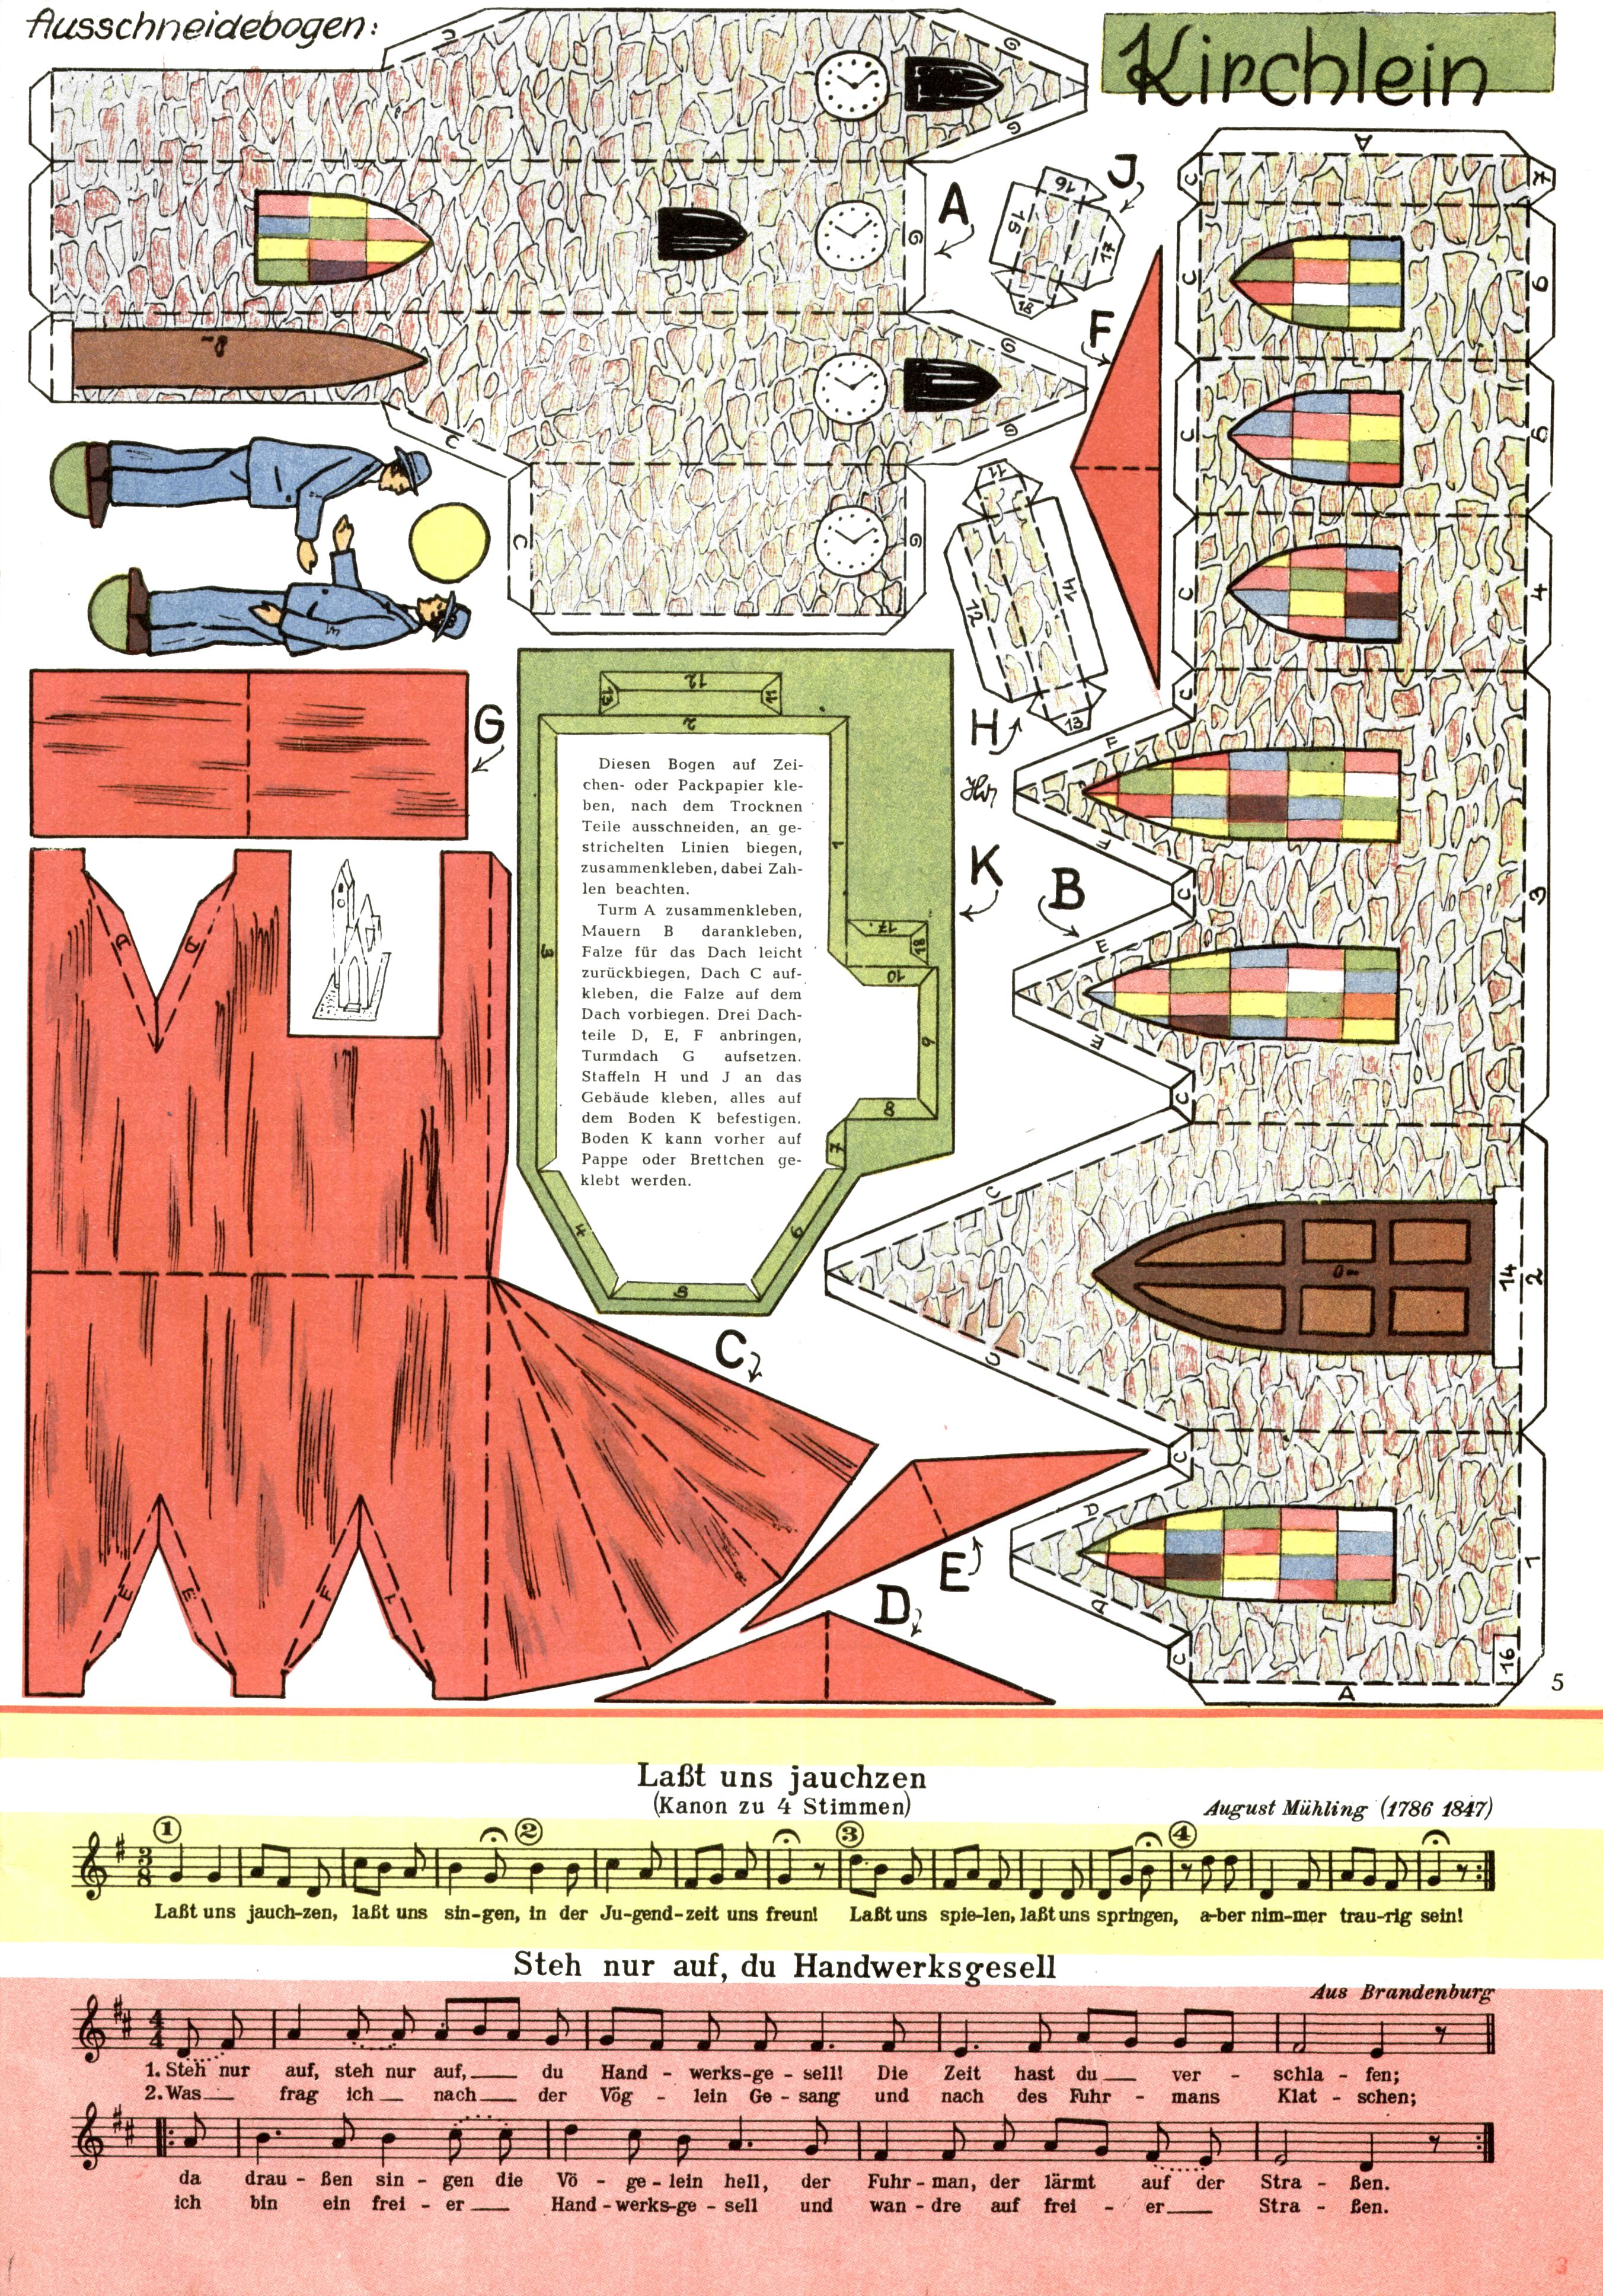 Ausschneidebogen:
Kirchlein
A
J
F
H
B
K
G
C
E
D
Diesen Bogen auf Zei-
chen- oder Packpapier kle-
ben, nach dem Trocknen
Teile ausschneiden, an ge-
strichelten Linien biegen,
zusammenkleben, dabei Zah-
len beachten.
Turm A zusammenkleben,
Mauern B darankleben,
Falze für das Dach leicht
zurückbiegen, Dach C auf-
kleben, die Falze auf dem
Dach vorbiegen. Drei Dach-
teile D, E, F anbringen,
Turmdach G aufsetzen.
Staffeln H und J an das
Gebäude kleben, alles auf
dem Boden K befestigen.
Boden K kann vorher auf
Pappe oder Brettchen ge-
klebt werden.
5
Laßt uns jauchzen
(Kanon zu 4 Stimmen)
August Mühling (1786 1847)
1 2 3 4
Laßt uns jauch-zen, laßt uns sin-gen, in der Ju-gend-zeit uns freun! Laßt uns spie-len, laßt uns springen, a-ber nim-mer trau-rig sein!
Steh nur auf, du Handwerksgesell
Aus Brandenburg
1. Steh nur auf, steh nur auf, du Hand - werks-ge - sell! Die Zeit hast du ver - schla - fen;
2. Was frag ich nach der Vög - lein Ge - sang und nach des Fuhr - mans Klat - schen;
da drau - ßen sin - gen die Vö - ge - lein hell, der Fuhr - man, der lärmt auf der Stra - ßen.
ich bin ein frei - er Hand - werks-ge - sell und wan - dre auf frei - er Stra - ßen.
3